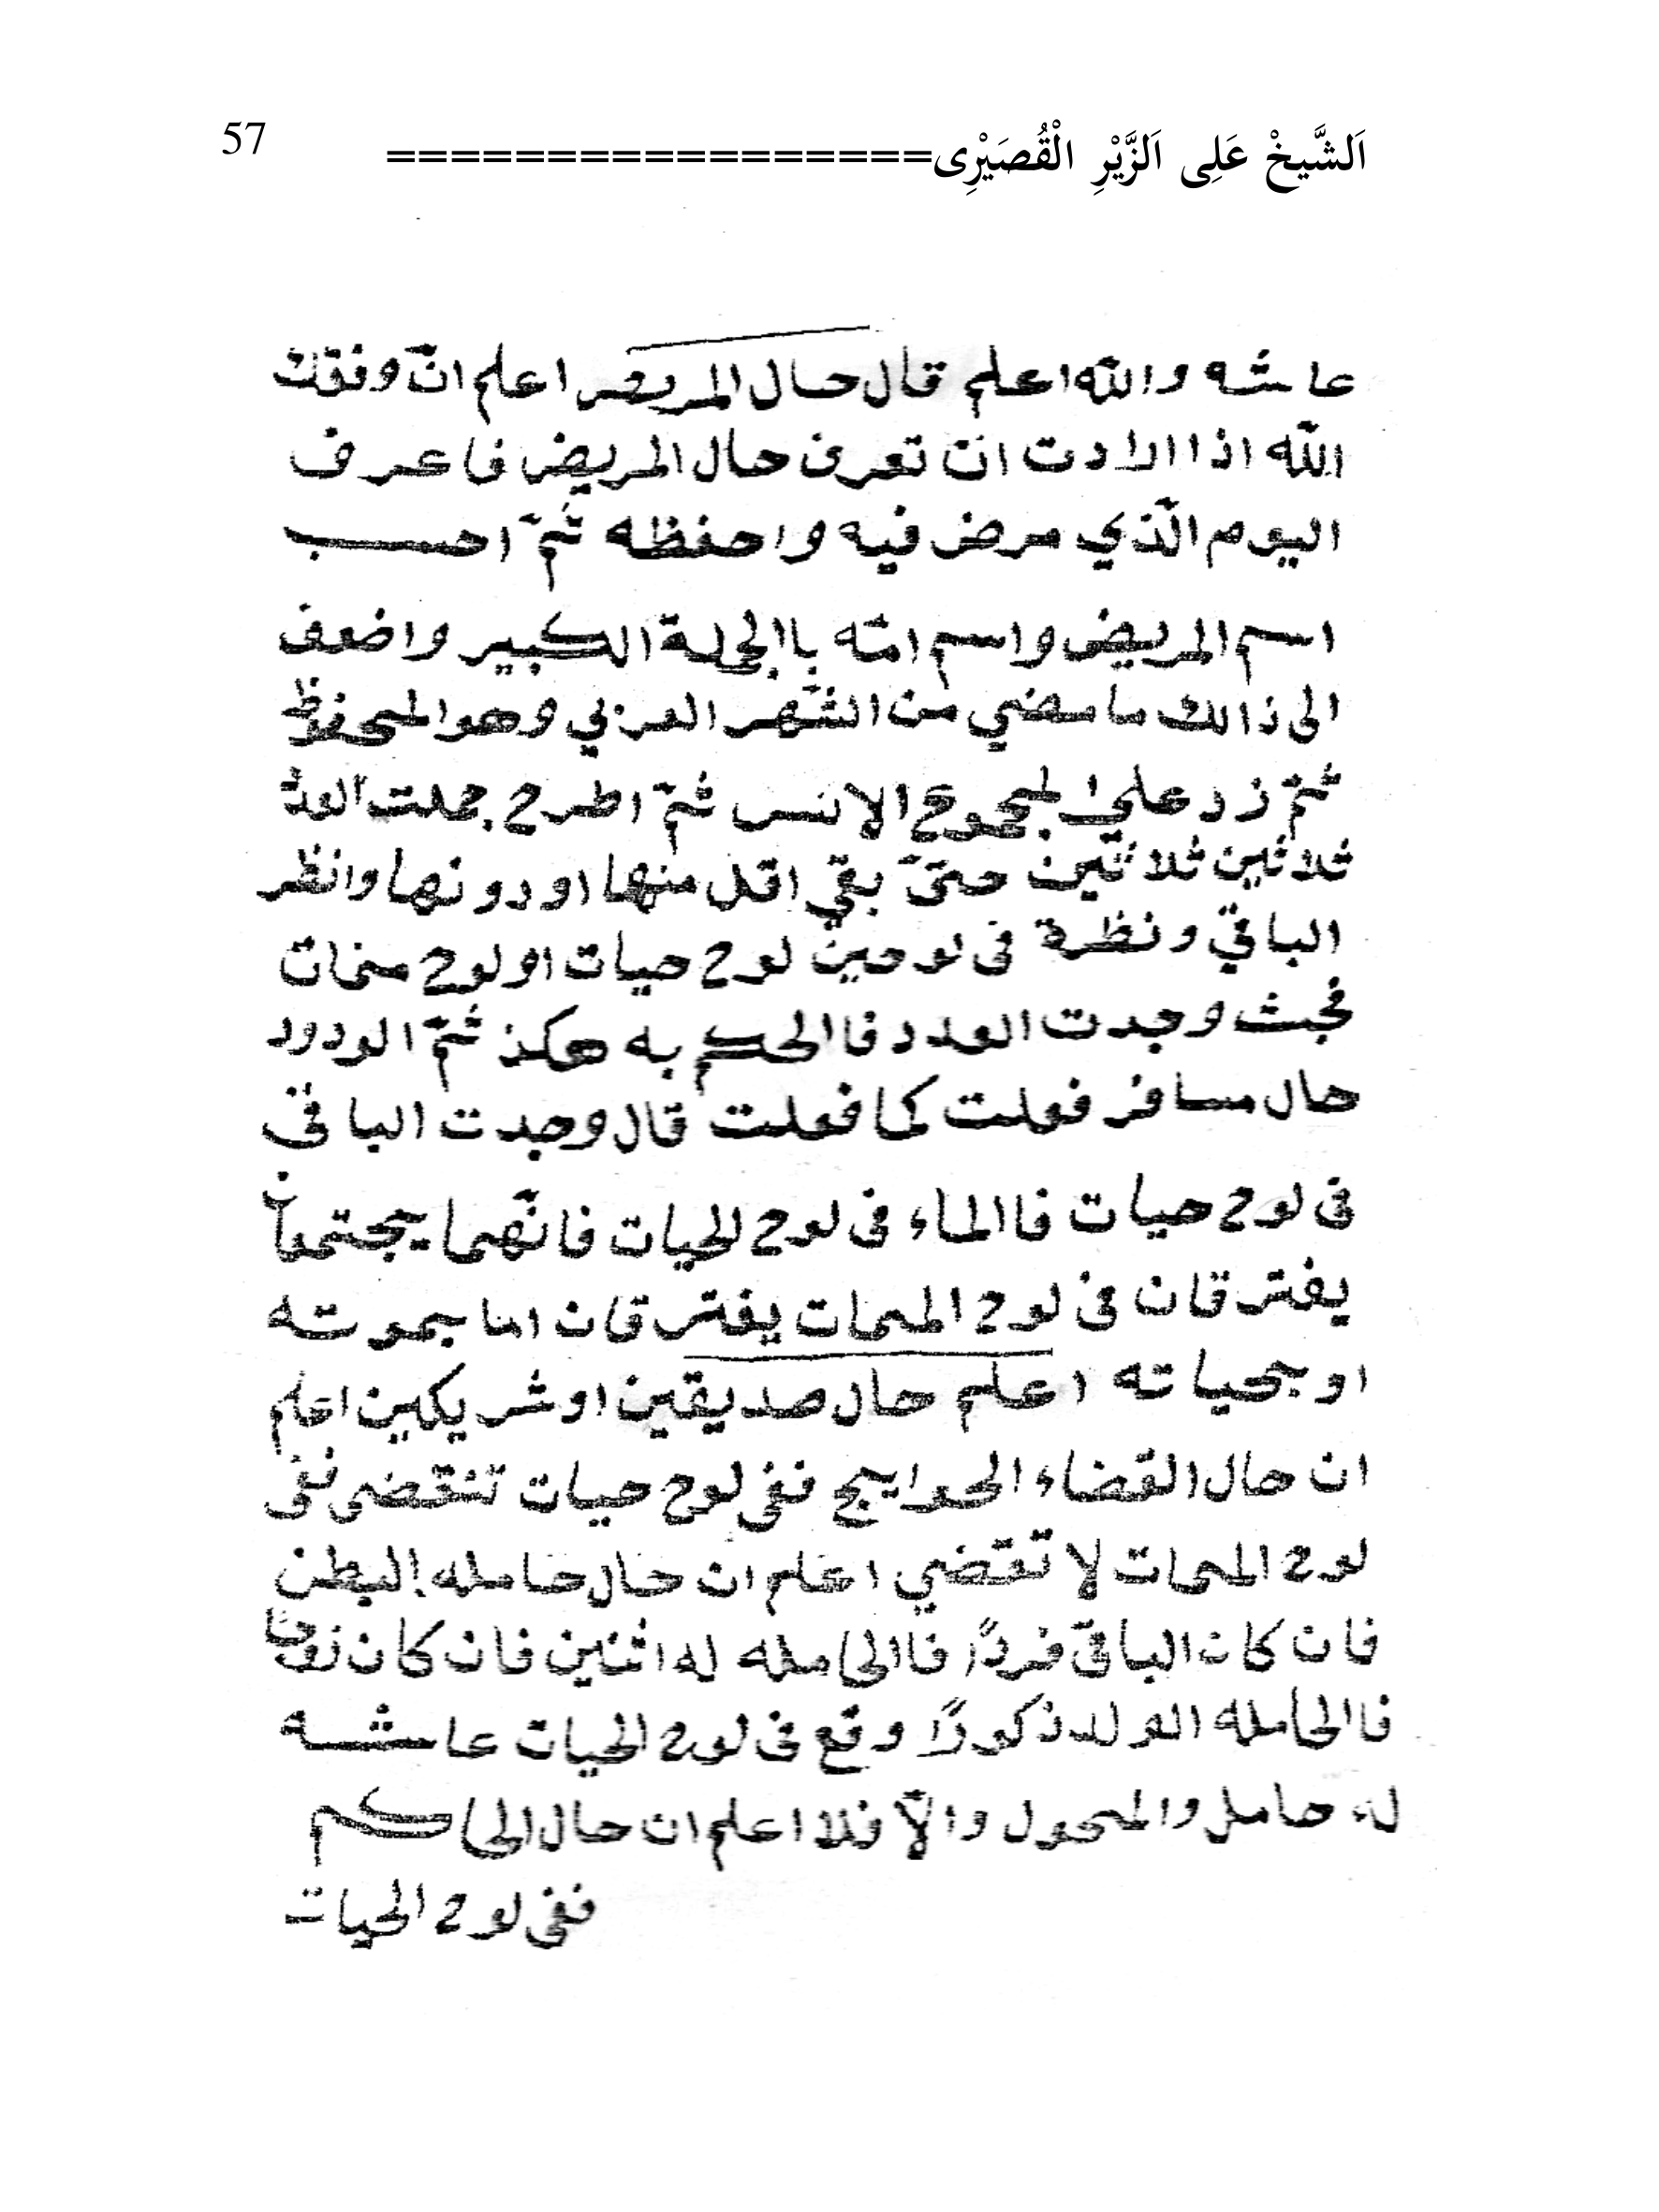 اَلشَّيخْ عَلِى اَلزَّيْرِ الْقُصَيْرِى================= 57
عاشه والله اعلم قال حال المريض اعلم انّ وفقك
اللّه اذا الادت ان تعرف حال المريض فاعرف
اليوم الّذي مرض فيه واحفظه ثمّ احسب
اسم المريض واسم امّه باالجملة الكبير واضعف
الى ذالك ما مضي من الشّهر العربي وهو المحفوظ
ثمّ زد على المجموع الانس ثمّ اطرح جملت العدد
ثلاثين ثلاثين حتىّ بقي اقل منها او دونها وانظر
الباقي ونظرة فى لوحين لوح حيات او لوح ممات
فحيث وجدت العدد فاالحكم به هكذ ثمّ الودود
حال مسافر فعلت كما فعلت قال وجدت الباقي
فى لوح حيات فاالماء فى لوح الحيات فانّهما يجتمعان
يفترقان فى لوح الممات يفترقان اما بموته
او بحياته اعلم حال صديقين او شريكين اعلم
ان حال القضاء الحوايج ففى لوح حيات تنقضى نفى
لوح الممات لا تقضي اعلم ان حال حامله البطن
فان كان الباقى فردًا فاالحامله له اثنين فان كان زوجًا
فاالحامله الولد ذكورًا وقع فى لوح الحيات عاشه
له حامل والمحول والّا فلا اعلم ان حال الحاكم
ففى لوح الحيات